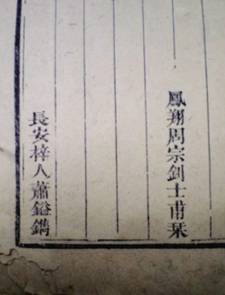 鳳翔周宗釗士甫栞
長安梓人蕭鎰鐫